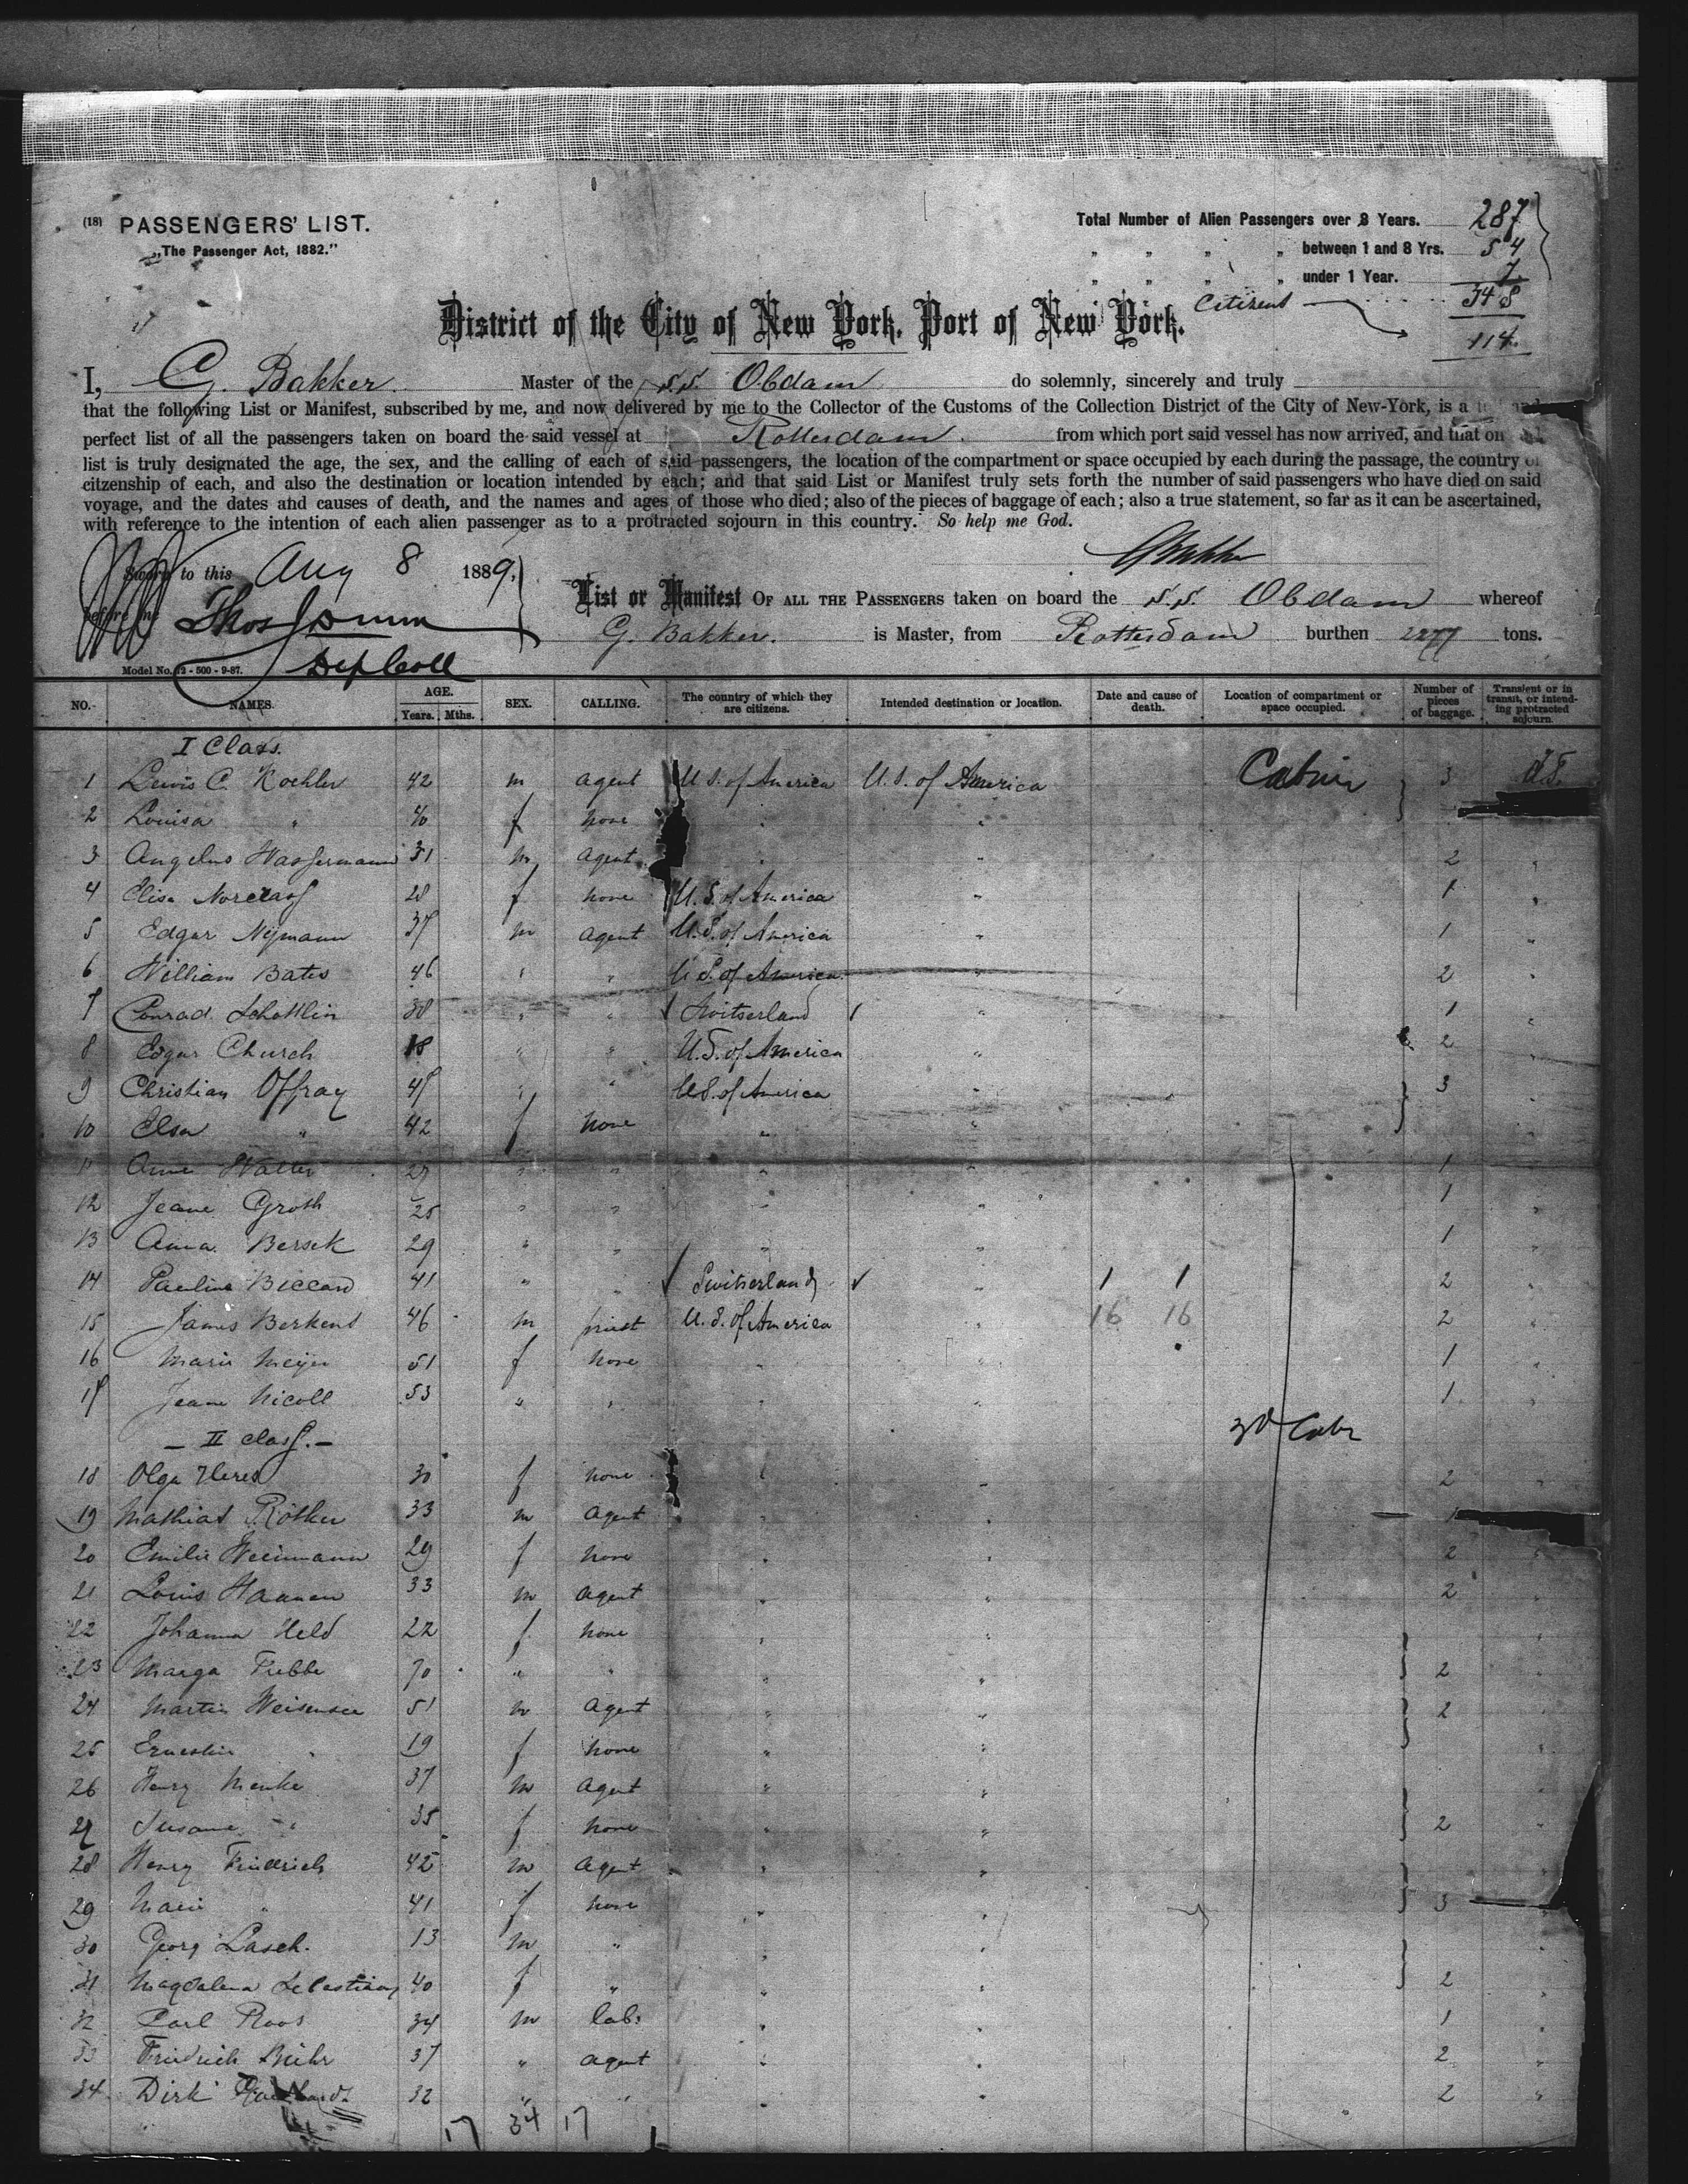 (18) PASSENGERS' LIST.
„The Passenger Act, 1882."
Total Number of Alien Passengers over 8 Years. 287
„ „ „ „ between 1 and 8 Yrs. 54
„ „ „ „ under 1 Year. 7
348
Citizens
114
District of the City of New York, Port of New York.
I, G. Bakker Master of the S.S. Obdam do solemnly, sincerely and truly
that the following List or Manifest, subscribed by me, and now delivered by me to the Collector of the Customs of the Collection District of the City of New-York, is a
perfect list of all the passengers taken on board the said vessel at Rotterdam from which port said vessel has now arrived, and that on
list is truly designated the age, the sex, and the calling of each of said passengers, the location of the compartment or space occupied by each during the passage, the country of
citzenship of each, and also the destination or location intended by each; and that said List or Manifest truly sets forth the number of said passengers who have died on said
voyage, and the dates and causes of death, and the names and ages of those who died; also of the pieces of baggage of each; also a true statement, so far as it can be ascertained,
with reference to the intention of each alien passenger as to a protracted sojourn in this country. So help me God.
G Bakker
Sworn to this Aug 8 1889,
before me Thos J Dunn
Dep Coll
List or Manifest OF ALL THE PASSENGERS taken on board the S.S. Obdam whereof
G. Bakker. is Master, from Rotterdam burthen 2277 tons.
Model No. 12 - 500 - 9-87.
NO. NAMES. AGE. Years. Mths. SEX. CALLING. The country of which they are citizens. Intended destination or location. Date and cause of death. Location of compartment or space occupied. Number of pieces of baggage. Transient or in transit, or intending protracted sojourn.
I Class.
1 Lewis C. Koehler 42 m agent U.S. of America U.S. of America Cabin 3
2 Louisa " 40 f none " "
3 Angelus Hassermann 31 m agent " " 2 "
4 Elisa 28 f none U.S. of America " 1 "
5 Edgar Nijmann 37 m agent U.S. of America " 1 "
6 William Bates 46 " " U.S. of America " 2 "
7 Conrad Schottlin 38 " " Switserland " 1 "
8 Edgar Church 18 " " U.S. of America " 2 "
9 Christian Offray 47 " " U.S. of America 3
10 Elsa " 42 f none " " "
11 Anna Walter 27 " " " " 1 "
12 Jeane Grosh 25 " " " " 1 "
13 Anna Bersek 29 " " " " 1 "
14 Pauline Biccard 41 " " Switserland " 1 1 2 "
15 James Berkens 46 m priest U.S. of America " 16 16 2 "
16 Marie Meijer 51 f none " " 1 "
17 Jeane Nicoll 53 " " " " 1 "
— II class. — Cabr
18 Olga Heres 30 f none " " 2 "
19 Mathias Röther 33 m agent " " 1
20 Emilie Weinmann 29 f none " " 2 "
21 Louis Hannen 33 m agent " " 2 "
22 Johanna Held 22 f none " " "
23 Marga Tribbe 70 " " " " 2 "
24 Martin Weisensee 51 m agent " " 2 "
25 Ernestine " 19 f none " " "
26 Henry Menke 37 m agent " " "
27 Susane " 35 f none " " 2 "
28 Henry Friedrich 42 m agent " " "
29 Marie " 41 f none " " 3
30 Georg Lasch. 13 m " " " "
31 Magdalena Sebastiany 40 f " " " 2 "
32 Carl Roos 34 m lab. " " 1 "
33 Friedrich Bühr 37 " agent " " 2 "
34 Dirk 32 " " " 2 "
17 34 17